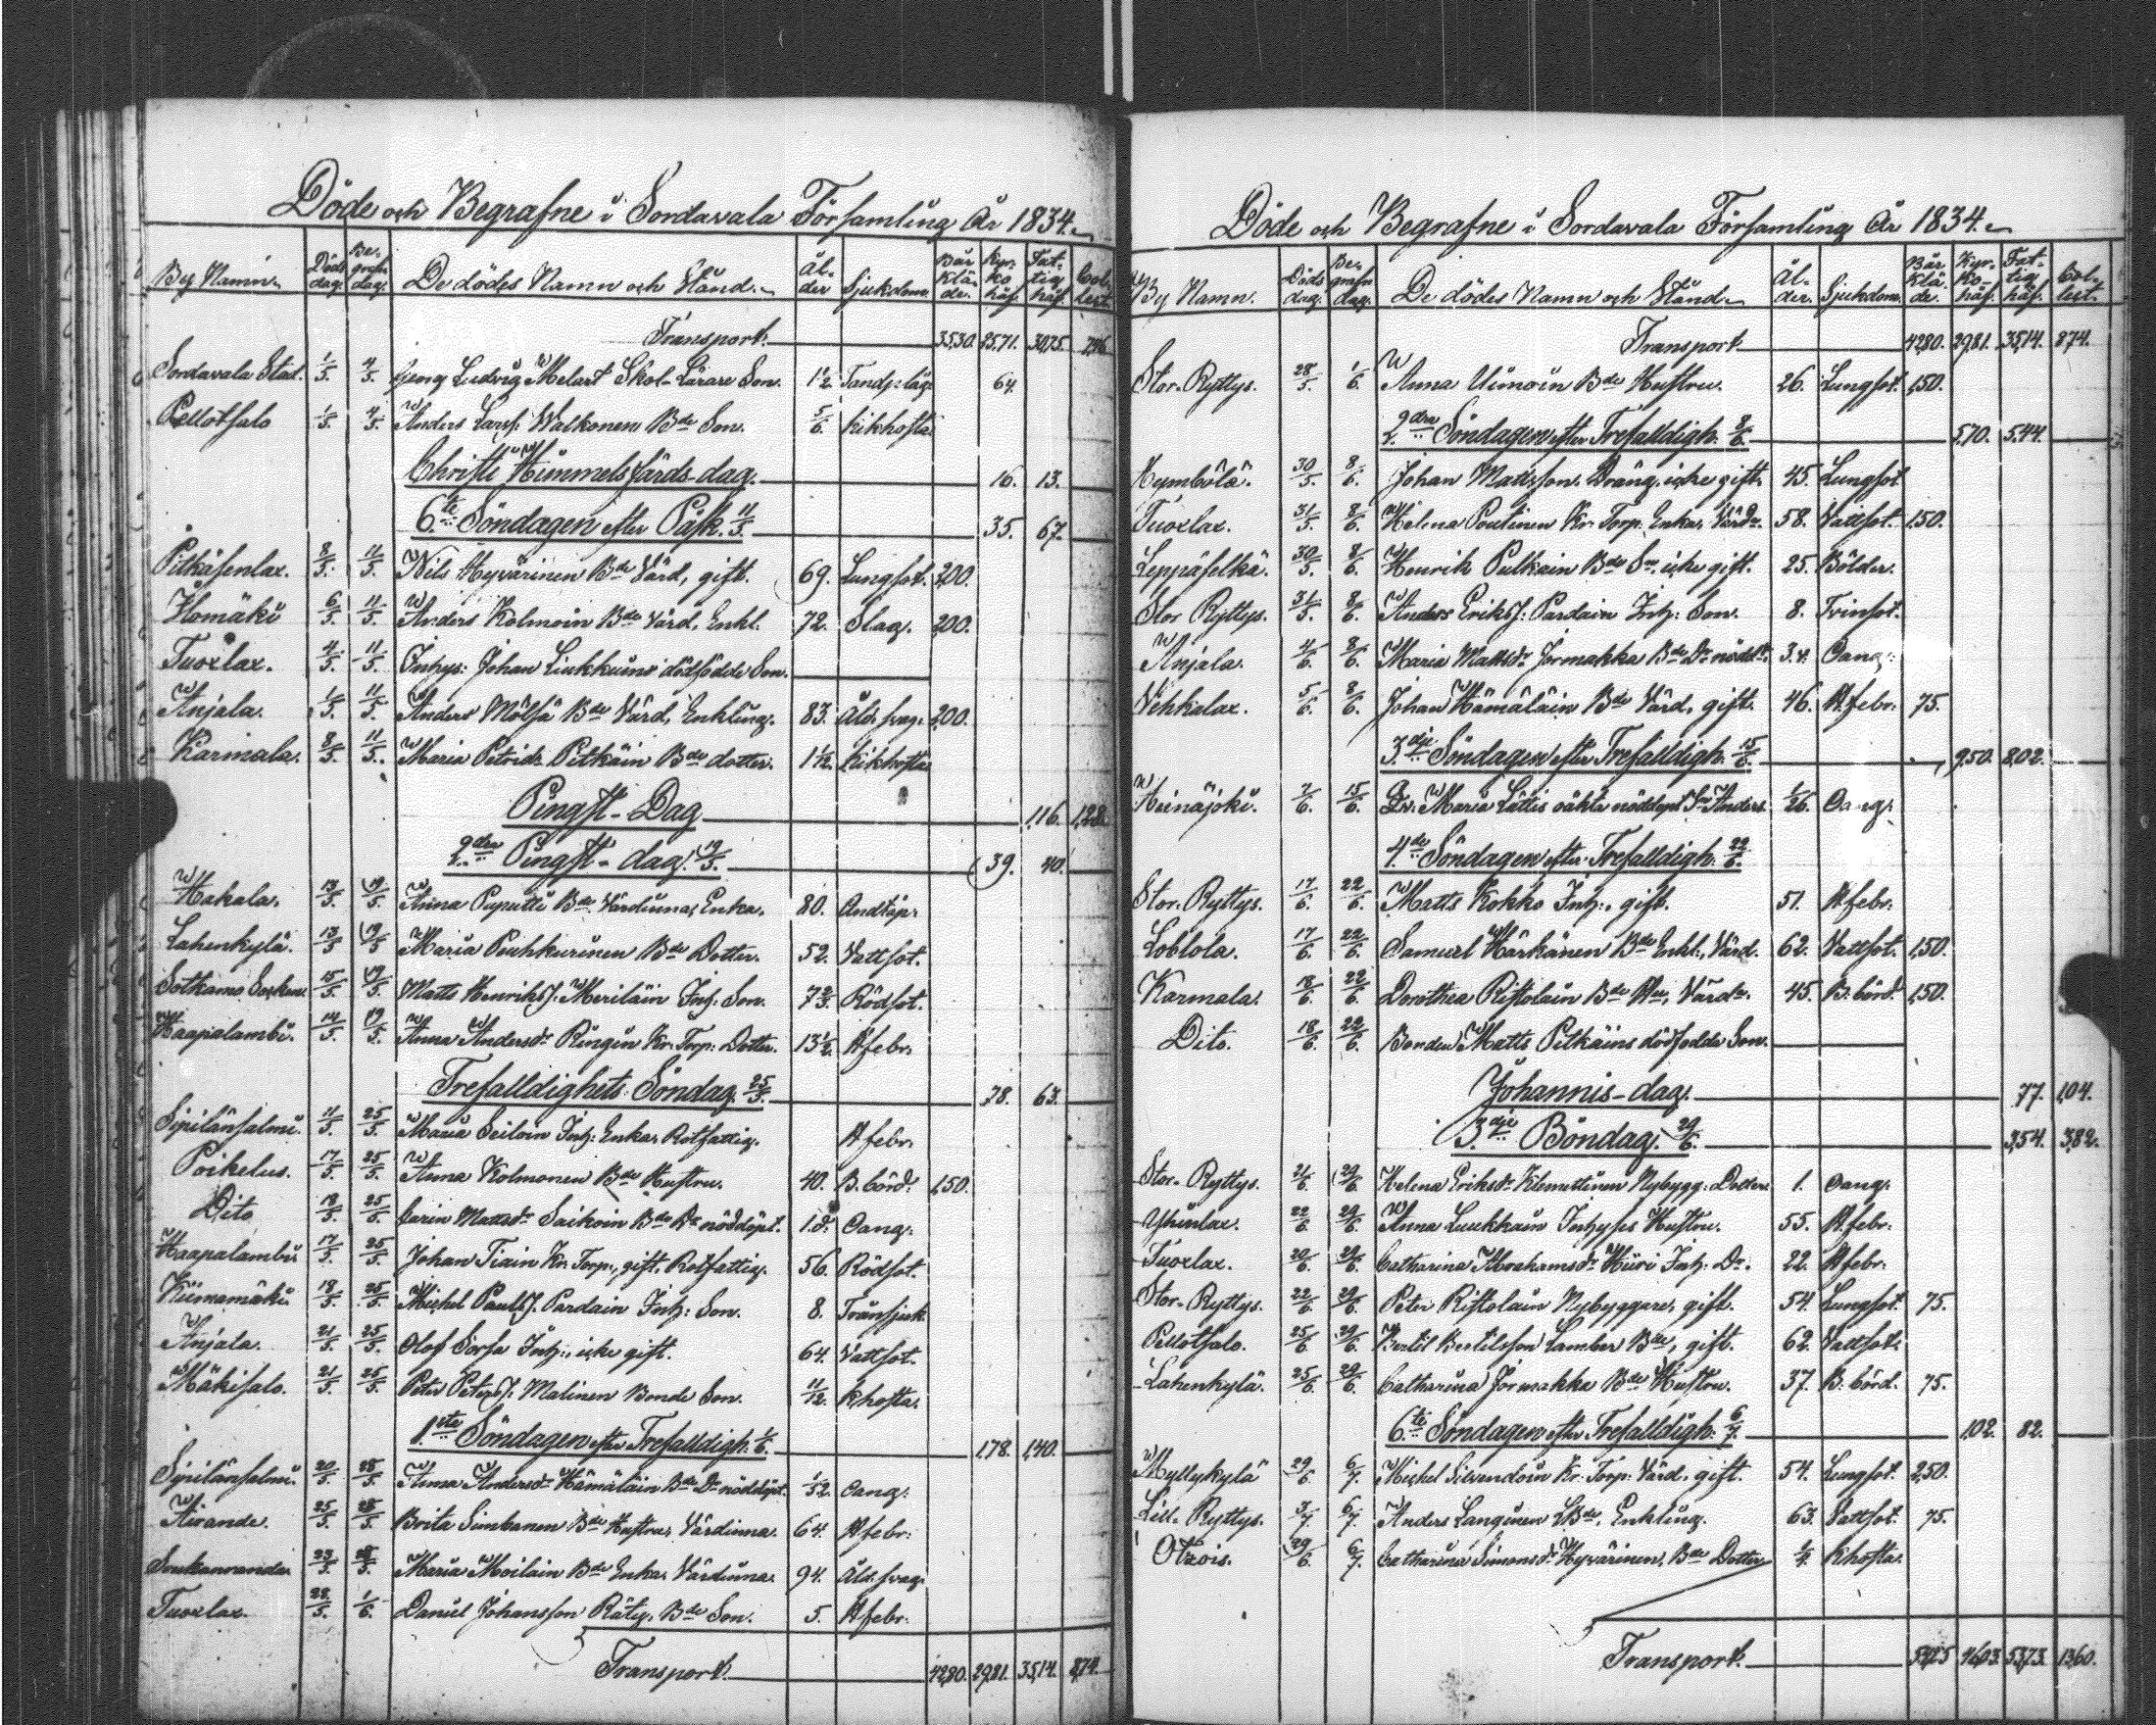 Döde och Begrafne i Sordavala Församling År 1834.
By Namn. Döds dag. Be-grafn dag. De dödes Namn och Stånd. Ål-der Sjukdom. Bår Klä-de. Kyr-ko håf. Fat-tig håf. Col-lect.
Transport. 35,30. 25,71. 30,75. 7,46
Sordavala Stad. 1/5. 4/5. Georg Ludvig Melart Skol-Lärare Son. 1½ Tandpläg. 64.
Pellotsalo 1/5. 4/5. Anders Larss. Walkonen Bde Son. 5/6. Kikhosta
Christi Himmelsfärds-dag. 16. 13.
6te Söndagen efter Påsk. 11/5. 35. 67.
Pitkäsenlax. 8/5. 11/5. Nils Hyvärinen Bde Värd, gift. 69. Lungsot. 2,00.
Ilomäki 6/5. 11/5. Anders Kolmoin Bde Värd, Enkl. 72. Slag. 2,00.
Tuoxlax. 4/5. 11/5. Inhys: Johan Liukkuins dödfödde Son.
Anjala. 1/5. 11/5. Anders Mölsä Bde Värd, Enkling. 83. Åld. svag. 2,00.
Karmala. 8/5. 11/5. Maria Petridr Pitkäin Bde dotter. 1½. Kikhosta
Pingst-Dag 1,16. 1,28.
2dra Pingst-dag. 19/5. 39. 40.
Hakala. 13/5. 19/5. Anna Puputti Bde Värdinna, Enka. 80. Andtäp.
Lahenkylä. 13/5 19/5 Maria Puhkurinen Bde Dotter. 52. Vattsot.
Sotkamo Socken. 15/5. 19/5. Matts Henrikss. Meriläin Inh: Son. 7⅔. Rödsot.
Haapalambi. 14/5. 19/5. Anna Andersdr Ringin Kr. Torp: Dotter. 13½. H febr.
Trefalldighets Söndag. 25/5. 78. 63.
Sipilänsalmi. 11/5. 25/5. Maria Seiloin Inh: Enka, Rotfattig. H febr.
Poikelus. 17/5. 25/5. Anna Kolmonen Bde Hustru. 40. B. börd. 1,50.
Dito 18/5. 25/5. Carin Mattsdr Saikoin Bde Dr nöddöpt. 1. d. Oang.
Haapalambi 17/5. 25/5. Johan Tiain Kr. Torp., gift, Rotfattig. 56. Rödsot.
Kiimamäki. 18/5. 25/5. Michel Paulss. Pardain Inh: Son. 8. Trånsjuk.
Anjala. 21/5. 25/5. Olof Sorsa Inh:, icke gift. 64. Vattsot.
Mäkisalo. 21/5. 25/5. Peter Peterss. Malinen Bonde Son. 11/12. Khosta.
1sta Söndagen efter Trefalldigh. 1/6. 1,78. 1,40.
Sipilänsalmi. 20/5. 28/5. Anna Andersdr Hämäläin Bde Dr nöddöpt. 1/52. Oang.
Airanne. 25/5. 28/5. Brita Simbanen Bde Hustru, Värdinna. 64. H febr.
23/5. 28/5. Maria Moilain Bde Enka, Värdinna. 94. Åld. svag.
Tuoxlax. 28/5. 1/6. Daniel Johansson Räty, Bde Son. 5. H febr.
Transport. 42,80. 29,81. 35,14. 8,74.
Döde och Begrafne i Sordavala Församling År 1834.
By Namn. Döds dag. Be-grafn dag. De dödes Namn och Stånd. Ål-der. Sjukdom. Bår Klä-de. Kyr-ko-håf. Fat-tig håf. Col-lect.
Transport. 42,80. 29,81. 35,14. 8,74.
Stor-Ryttys. 28/5. 1/6. Anna Uimoin Bde Hustru. 26. Lungsot. 1,50.
2dra Söndagen efter Trefalldigh. 8/6. 5,70. 5,44.
Hymbölä. 30/5. 8/6. Johan Mattsson Dräng, icke gift. 45. Lungsot
Tuoxlax. 31/5. 8/6. Helena Poutinen Kr. Torp. Enka, Värda. 58. Vattsot. 1,50.
Leppäselkä. 30/5. 8/6. Henrik Pulkain Bde Sn. icke gift. 25. Bölder.
Stor Ryttys. 31/5. 8/6. Anders Erikss. Pardain Inh: Son. 8. Tvinsot.
Anjala. 4/6. 8/6. Maria Mattsdr Jormakka Bde Dr nöddt. 3. v. Oang:
Vehkalax. 5/6. 8/6. Johan Hämäläin Bde Värd, gift. 46. H. febr. 75.
3dje Söndagen efter Trefalldigh. 15/6. 9,50. 8,02.
Heinäjoki. 7/6. 15/6. Maria Lättis oäkta nöddöpt Sn Anders. 1/26. Oang.
4de Söndagen efter Trefalldigh. 22/6.
Stor. Ryttys. 17/6. 22/6. Matts Kokko Inh:, gift. 51. H febr.
Loblola. 17/6. 22/6. Samuel Härkänen Bde Enkl., Värd. 62. Vattsot. 1,50.
Karmala. 18/6. 22/6. Dorothea Ristolain Bde Hu, Värda. 45. B. börd. 1,50.
Dito. 18/6. 22/6. Bonden Matts Pitkäins dödfödde Son.
Johannis-dag. 77. 1,04.
3dje Böndag. 29/6. 3,54. 3,82.
Stor-Ryttys. 21/6. 29/6. Helena Eriksdr Klemettinen Nybygg: Dotter. 1. Oang.
Yhinlax. 22/6. 29/6. Anna Luukkain Inhyses Hustru. 55. H. febr.
Tuoxlax. 20/6. 29/6. Catharina Abrahamsdr Hiiri Inh: Dr. 22. H febr.
Stor-Ryttys. 22/6. 29/6. Peter Ristolain Nybyggare, gift. 54. Lungsot. 75.
Pellotsalo. 25/6. 29/6. Bertil Bertilsson Lamber Bde, gift. 62. Vattsot.
Lahenkylä. 25/6. 29/6. Catharina Jormakka Bde Hustru. 37. B. börd. 75.
6te Söndagen efter Trefalldigh. 6/7. 1,02. 82.
Myllykylä 29/6 6/7. Michel Sivendoin Kr. Torp: Värd, gift. 54. Lungsot. 2,50.
Lill. Ryttys. 3/7. 6/7. Anders Languinen Bde, Enkling. 63. Vattsot. 75.
Otrois. 29/6 6/7. Catharina Simonsdr Hyvärinen, Bde Dotter ¼. Khosta.
Transport. 53,25 46,03. 53,73. 13,60.